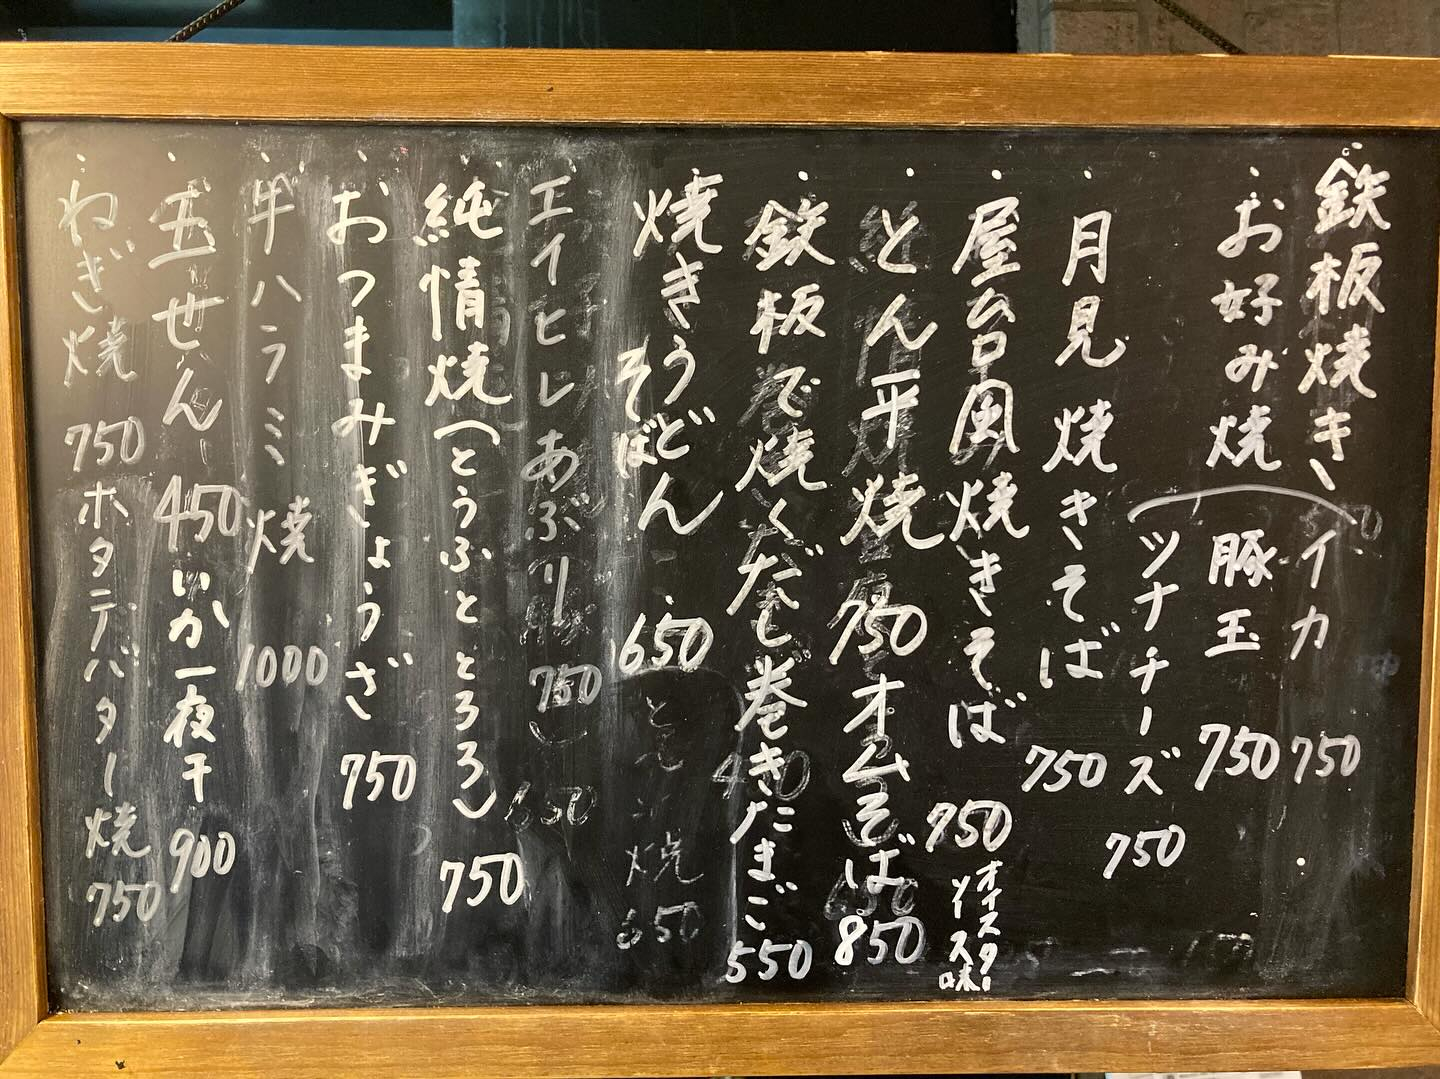 鉄板焼き
お好み焼
イカ 750
豚玉 750
ツナチーズ 750
月見焼きそば 750
屋台風焼きそば 750
オイスター
ソース味
とん平焼 750
オムそば 850
鉄板で焼くだし巻きたまご 550
焼きうどん
そば
650
エイヒレあぶり 750
純情焼(とうふととろろ) 750
おつまみぎょうざ 750
牛ハラミ焼 1000
玉せん 450
いか一夜干 900
ねぎ焼 750
ホタテバター焼 750